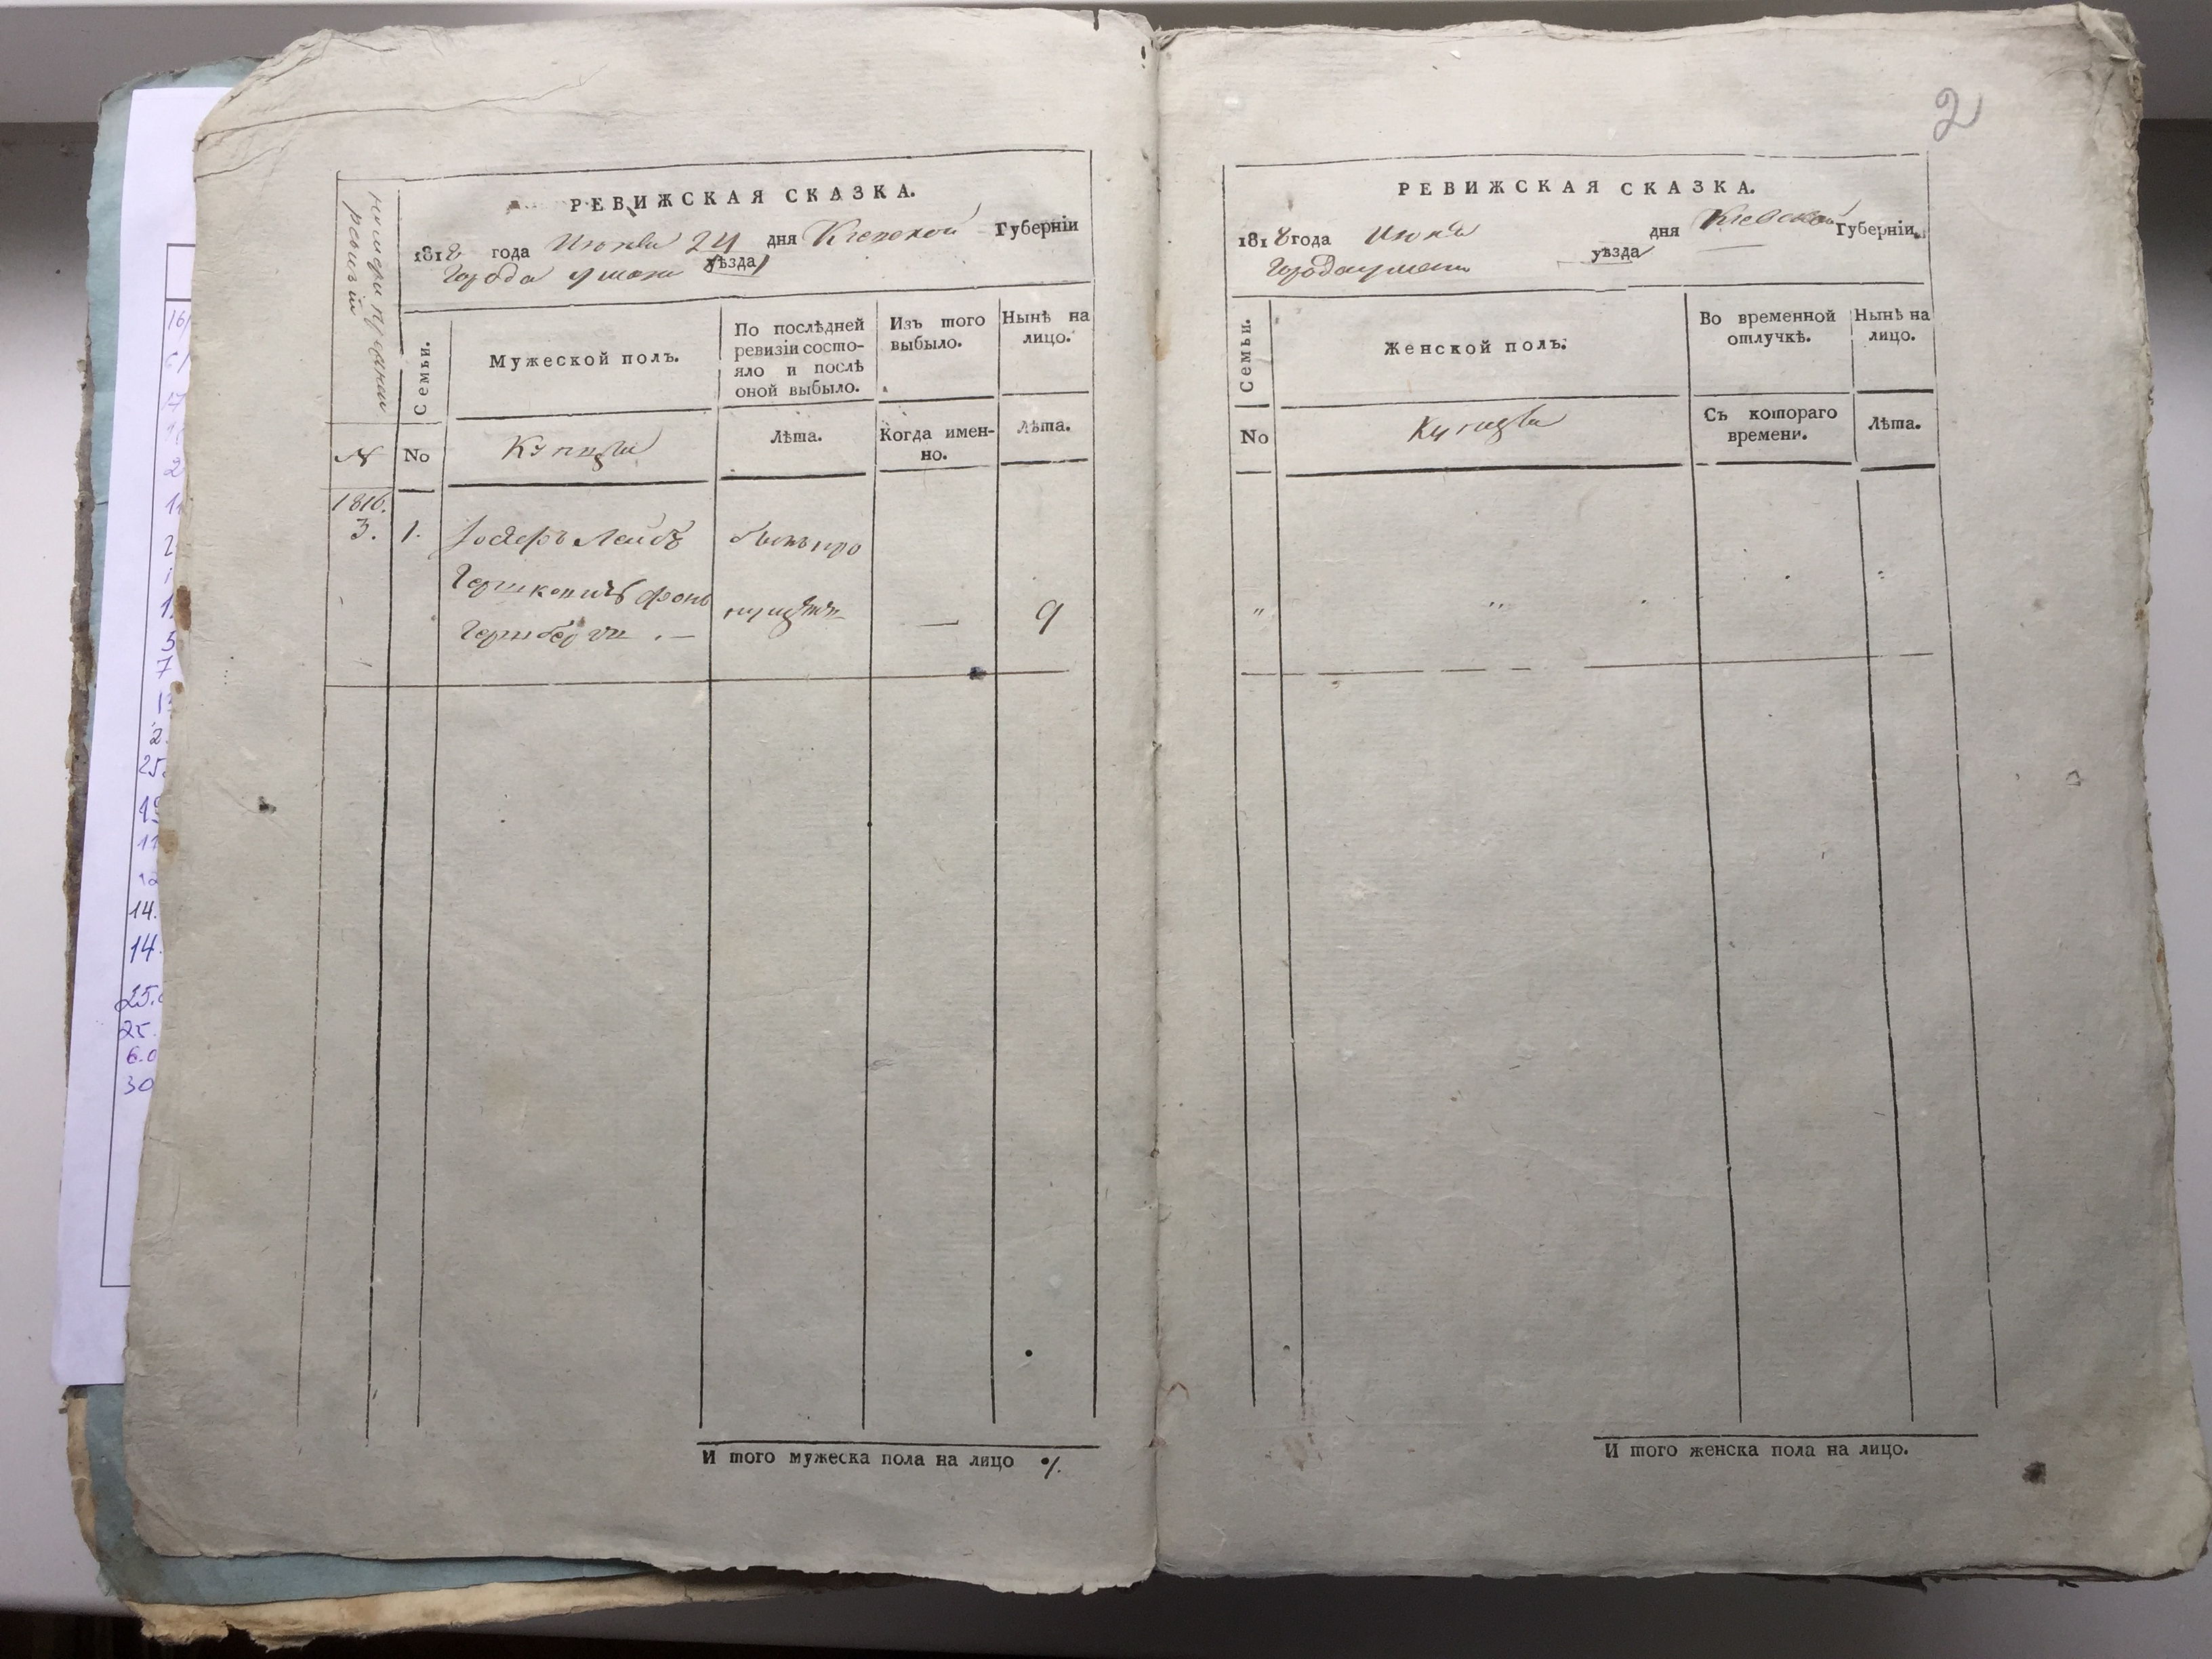 2
РЕВИЖСКАЯ СКАЗКА.
1818 года Июня 24 дня Киевской Губерніи
Города Умани уѣзда
Семьи.
Мужеской полъ.
По послѣдней ревизіи состо-
яло и послѣ
оной выбыло.
Изъ того
выбыло.
Нынѣ на
лицо.
№
No
Купцы
Лѣта.
Когда имен-
но.
Лѣта.
1816.
3.
1.
Лейб
Гершковичъ фонъ
9
И того мужеска пола на лицо
РЕВИЖСКАЯ СКАЗКА.
1818 года Июня дня Киевской Губерніи.
Города Умани уѣзда
Семьи.
Женской полъ.
Во временной
отлучкѣ.
Нынѣ на
лицо.
No
Купцы
Съ котораго
времени.
Лѣта.
И того женска пола на лицо.
16/
6/
17
2
11
2
1
1.
5
7
13
2.
25.
19
11
12
14.
14.
25.0
25.
6.0
30